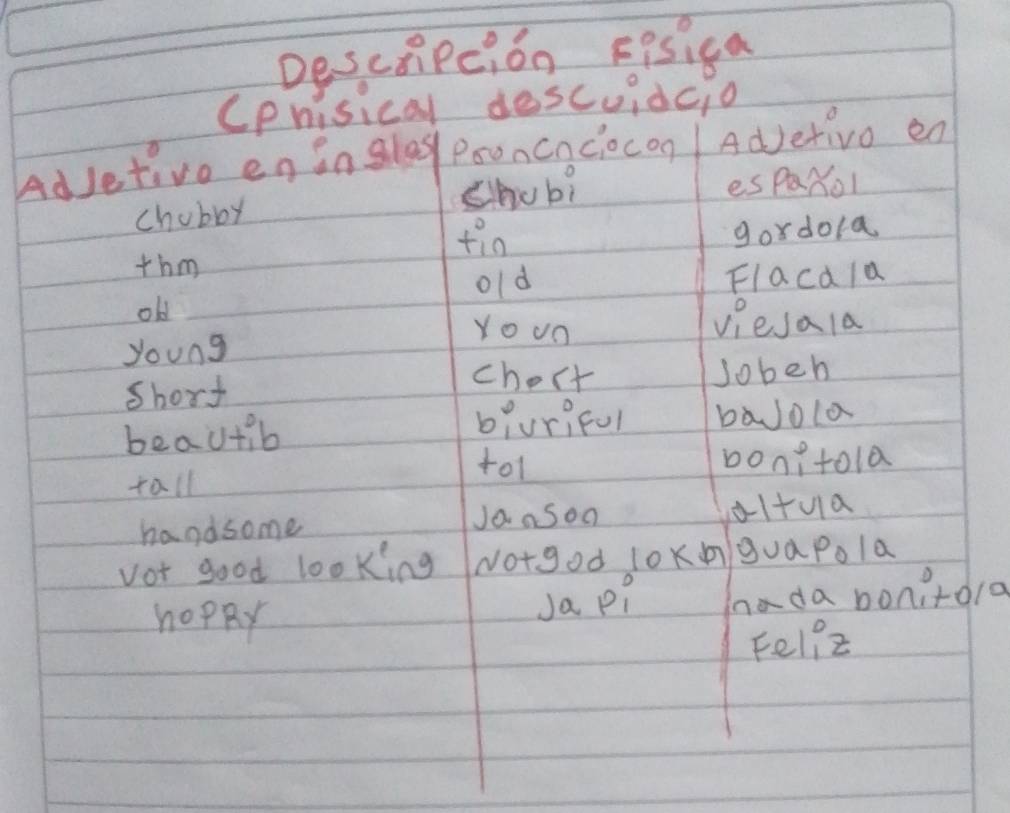 Descripción Física
(Phisical descuidcio
Adjetivo en ingles Proncnciocon Adjetivo en español
chubby chubi gordo/a
thm tin Flaca/a
old old viejo/a
young youn joben
Short chort bajo/a
beautib biuriful bonito/a
tall tol altu/a
handsome Janson guapo/a
Not good looking Not god lokin nada bonito/a
hoppy Japi Feliz